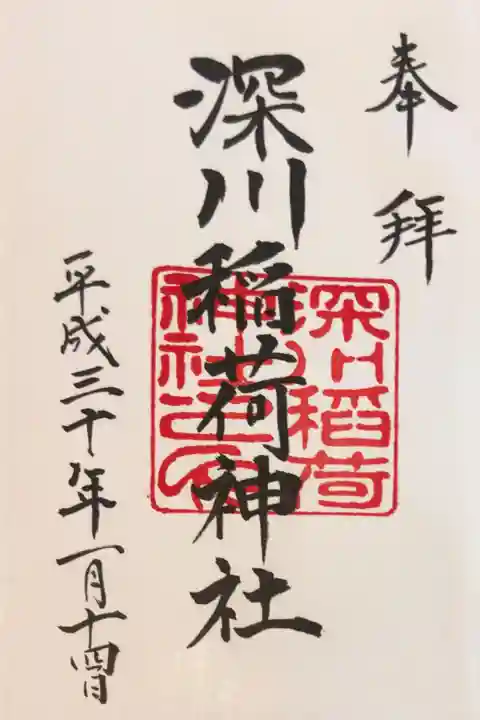 奉拝
深川稲荷神社
深川稲荷
神社之印
平成三十年一月十四日